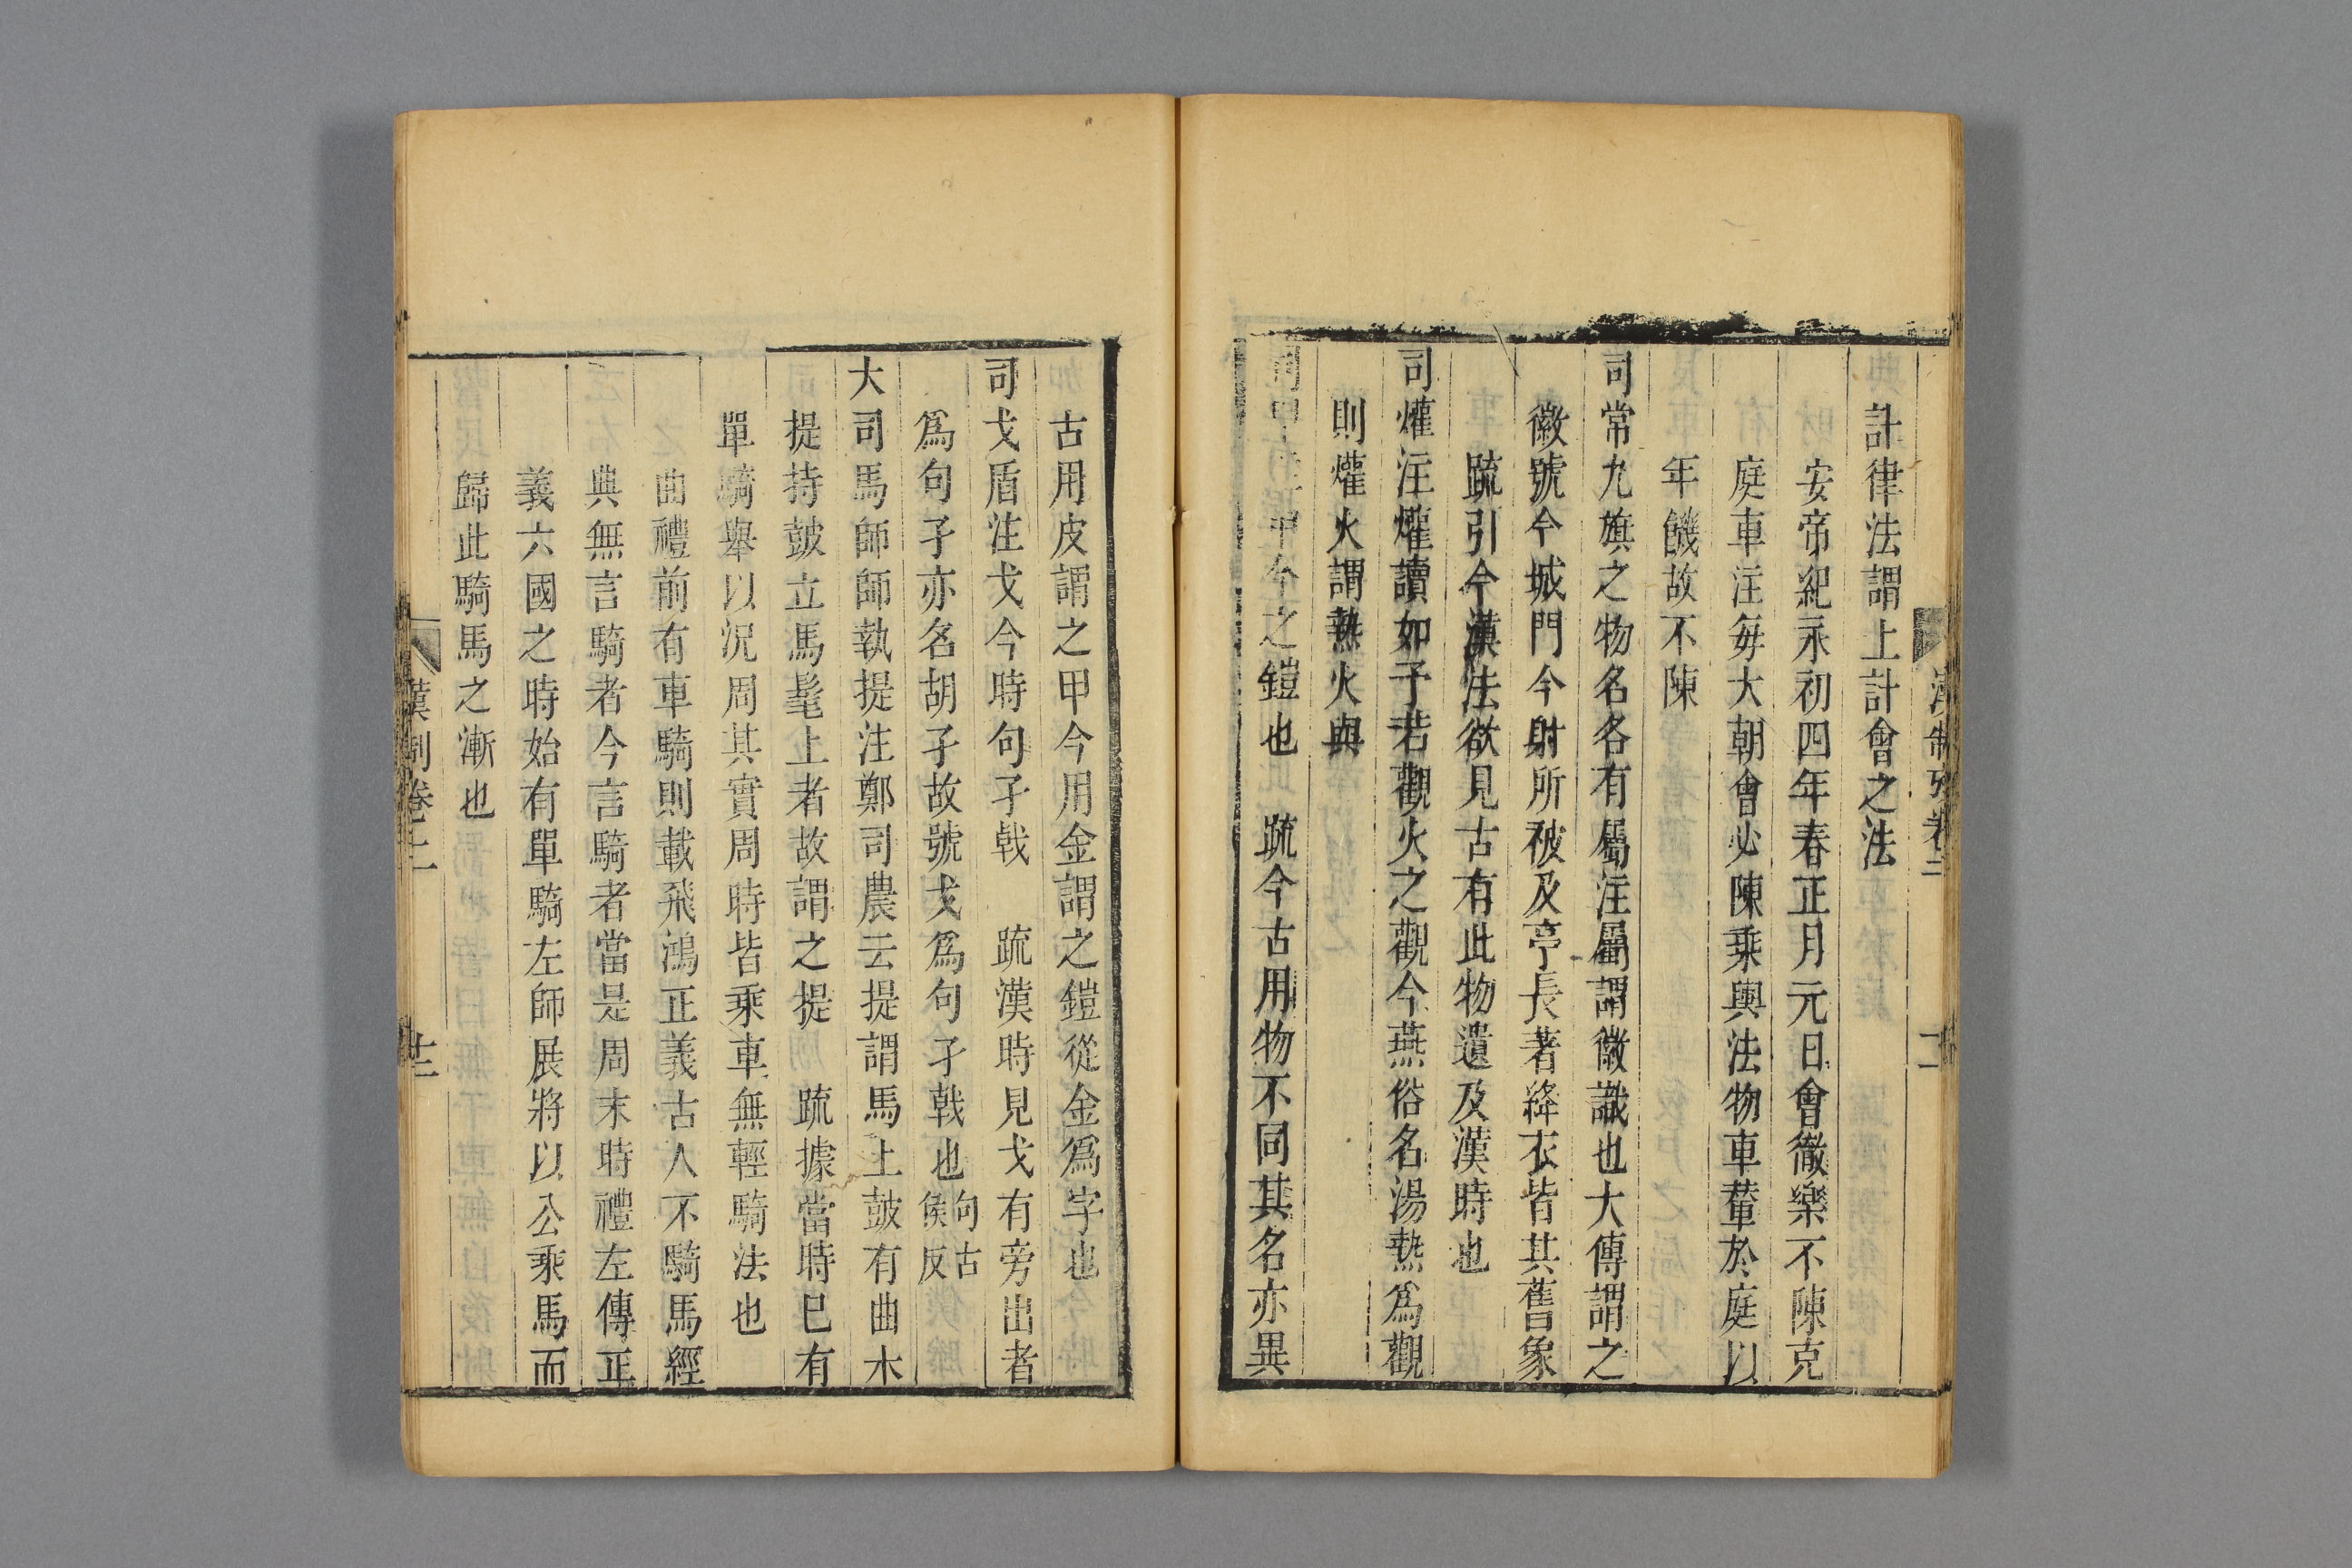 計律法謂上計會之法
安帝紀永初四年春正月元日會徹樂不陳充
庭車注每大朝會必陳乘輿法物車輦於庭以
年饑故不陳
司常九旗之物名各有屬注屬謂徽識也大傳謂之
徽號今城門今射所被及亭長著絳衣皆其舊象
疏引今漢法欲見古有此物遺及漢時也
司爟注爟讀如予若觀火之觀今燕俗名湯熱爲觀
則爟火謂熱火與
司甲注甲今之鎧也 疏今古用物不同其名亦異
古用皮謂之甲今用金謂之鎧從金爲字也
司戈盾注戈今時句孑戟 疏漢時見戈有旁出者
爲句孑亦名胡孑故號戈爲句孑戟也句古侯反
大司馬師師執提注鄭司農云提謂馬上鼓有曲木
提持鼓立馬髦上者故謂之提 疏據當時已有
單騎舉以況周其實周時皆乘車無輕騎法也
曲禮前有車騎則載飛鴻正義古人不騎馬經
典無言騎者今言騎者當是周末時禮左傳正
義六國之時始有單騎左師展將以公乘馬而
歸此騎馬之漸也
漢制卷二